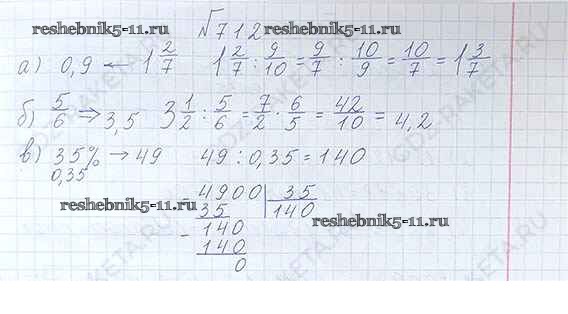 reshebnik5-11.ru №712 reshebnik5-11.ru
а) 0,9 ← 1 2/7 1 2/7 : 9/10 = 9/7 : 10/9 = 10/7 = 1 3/7
б) 5/6 → 3,5 3 1/2 : 5/6 = 7/2 · 6/5 = 42/10 = 4,2
в) 35% → 49 49 : 0,35 = 140
0,35
- 4900 | 35
35 140
reshebnik5-11.ru reshebnik5-11.ru
- 140
140
0
GDZ-RAKETA.RU